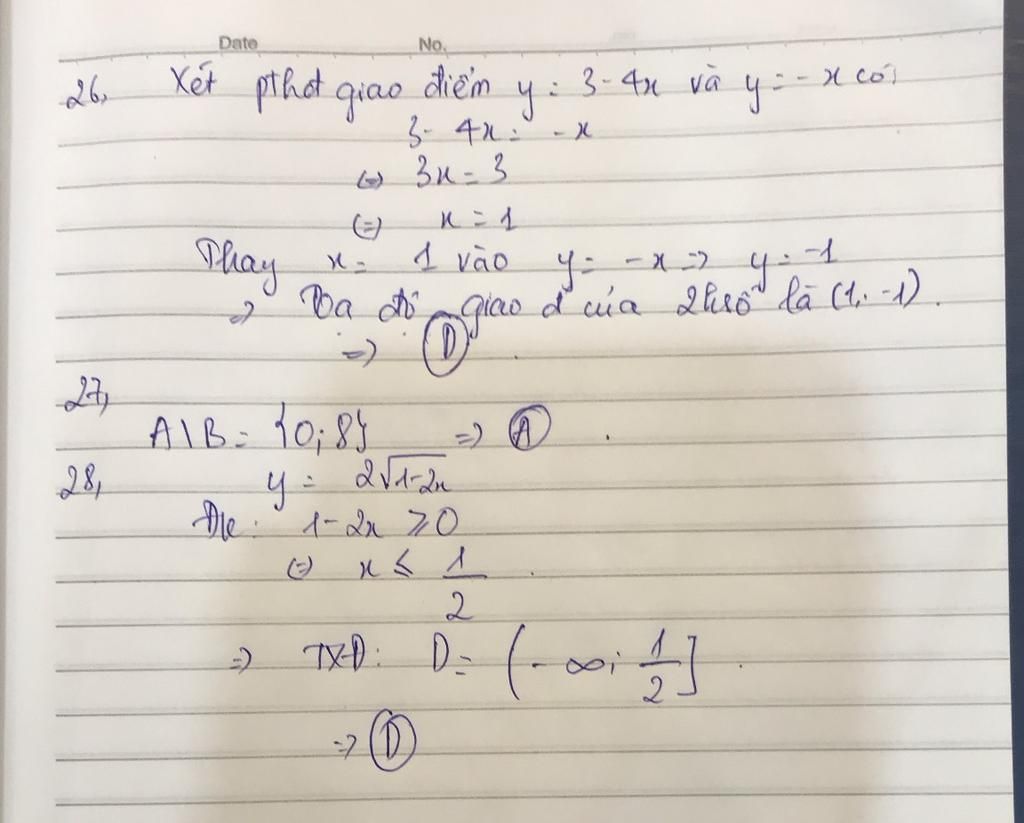 Date No.
26, Xét pthđ giao điểm y = 3 - 4x và y = - x có:
3 - 4x = - x
(=) 3x = 3
(=) x = 1
Thay x = 1 vào y = - x => y = -1
=> Tọa độ giao đ của 2 hsố là (1; -1).
=> D.
27,
A \ B = {0; 8} => A.
28, y = 2√1-2x
Đk: 1 - 2x ⩾ 0
(=) x ≤ 1/2.
=> TXĐ: D = (- ∞; 1/2].
=> D